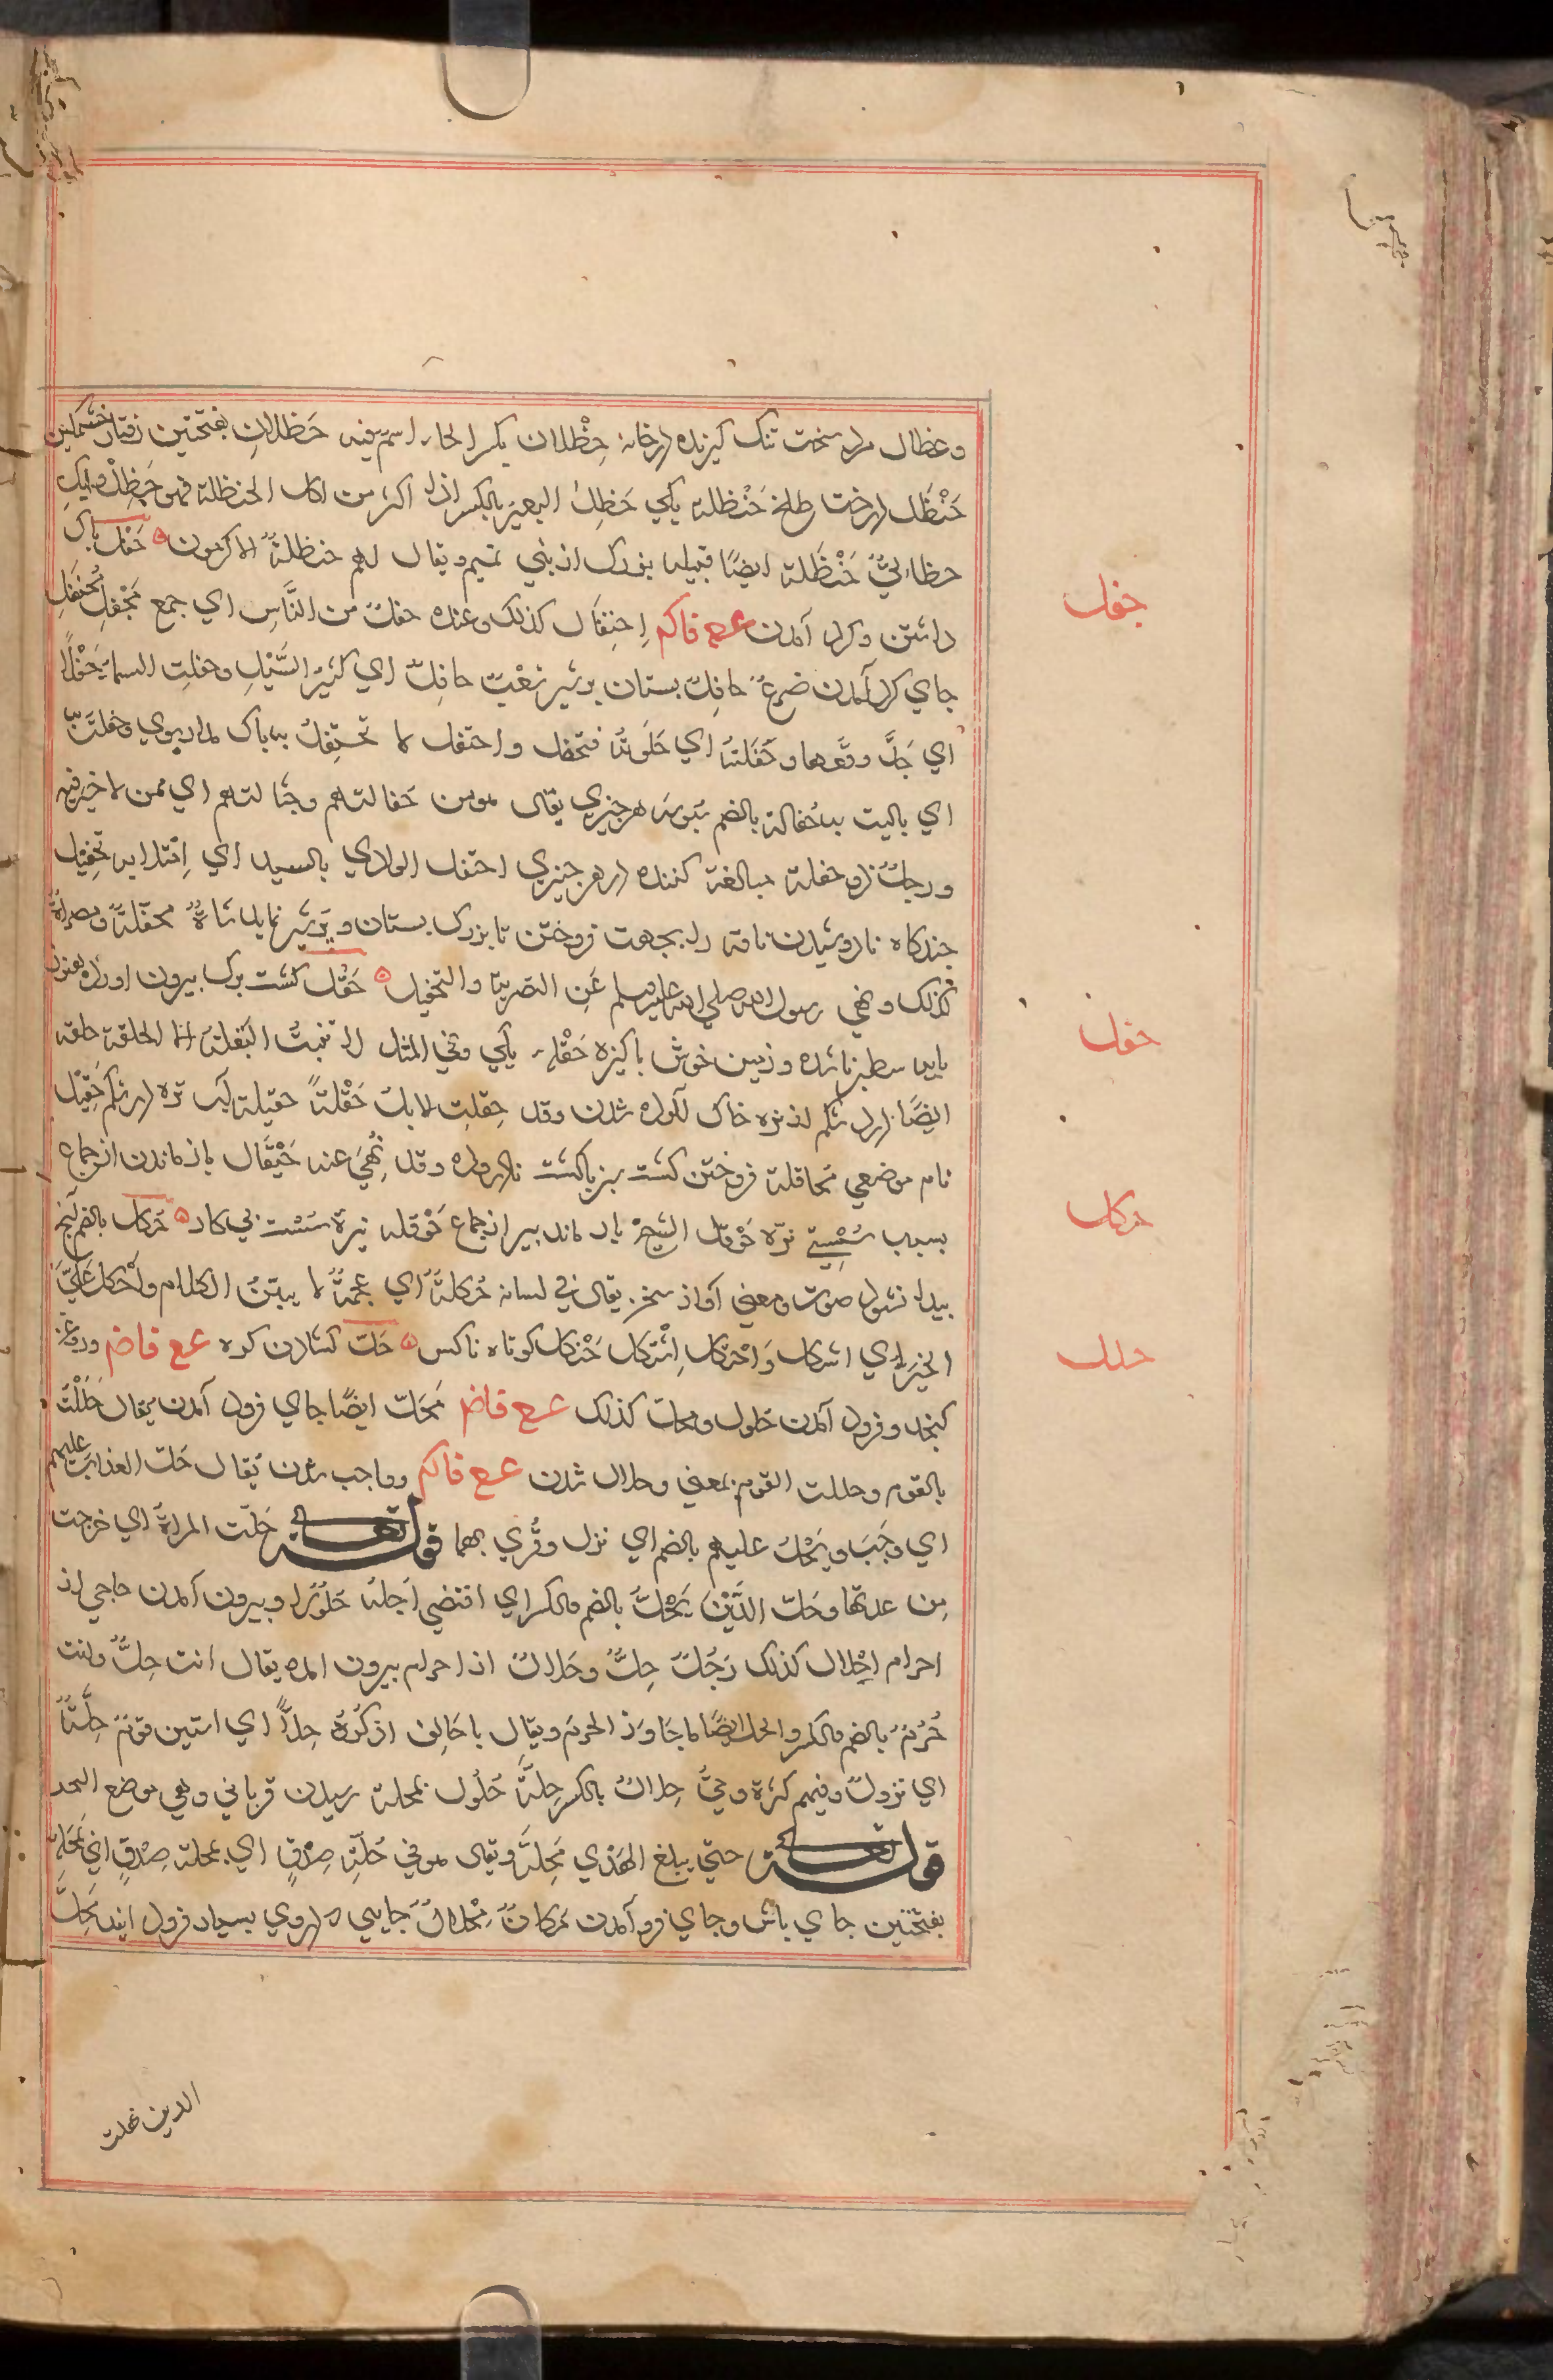 وعظال مرد سخت تنک کیرنده در خانه حِظْلان بکسر الحاء اسم فیه حَظَلانِ بفتحتین رفتار خشمکین
حَنْظَل درخت طلخ حَنْظلة یکي حَظِلَ البعیر بالکسر اذا اکثر من اکل الحنظلة فهو حَظِلٌ وابل
حظالیٌ حَنْظَلة ایضًا قبیله بزرک از بني تمیم ویقال لهم حنظلةُ الاکرمون ه حَفْل باک
داشتن وکرد آمدن ع ع فاکم اِحتِفال کذلک وعنده حفلٌ من النَّاسِ اي جمع مَحْفِل مُحتفَل
جاي کرد آمدن ضرعٌ حافِلٌ بستان پر شیر شعبٌ حافلٌ اي کثیر السَّیْلِ وحفلتِ السماء حَفْلًا
اي جَدَّ وقعها وحَفَلتهُ اي جَلَوتهُ فتحفل واحتفل لا تحتفِلْ به باک مدار بوي وحفلتُ به
اي بالیت به حُفالة بالضم سَبوسهٔ هر چیزي یقال هو من حفالتهم وحثالتهم اي ممن لا خیر فیه
ورجلٌ ذو حفلة مبالغة کننده در هر چیزي احتفل الوادي بالسیل اي اِمتلا به تحفیل
چند کاه نا دوشیدن ناقه را بجهت فروختن تا بزرک بستان وپر شیر نماید شاةٌ محفّلةٌ ومصراةٌ
کذلک ونهي رسول الله صلي الله علیه وسلم عَنِ التصریة والتحفیل ه حَقْل کشت برک بیرون اورده هنوز
باید سطبر ناشده وزمین خوش باکیزه حَقْلة یکي وفي المثل لا تنبتُ البقلةَ الا الحقلة حقله
ایضًا درد شکم از تره خاک آلوده شدن وقد حِقلتِ الابلُ حَقْلةً حقیلة آب تره در شکم حَقِیْل
نام موضعي مُحاقلة فروختن کشت سبز باکشت نادروده وقد نُهِيَ عنه حَیْقال باز ماندن از جماع
بسبب سُسْتي نرّه حَوْقل الشیخُ باز ماند بیر از جماع حَوْقله نرهٔ سست بي کار ه حَرکل بالضم آنچه
بیدا نشود صوت ومعني آواز سخن یقال في لسانه حُکلةٌ اي عجمةٌ لا یبیّنُ الکلام واَحْکل عَلَيَّ
الخیر اي اشکل وَاحتکل اِشْتکل حَنکل کوتاه ناکس ه حَلّ کشادن کره ع ع فاضم وروغن
کنجد وفرود آمدن حُلول ومحلّ کذلک ع ع فاضم مَحَلّ ایضًا جاي فرود آمدن یقال حَلَلْتُ
بالقوم وحللت القوم بمعني وحلال شدن ع ع فاکم وواجب شدن یُقال حَلَّ العذابُ علیهم
اي وجَبَ ویَحُلّ علیهم بالضم اي نزل وقُري بهما قوله تعالی حَلّت المراةُ اي خرجت
مِن عدتها وحَلّ الدَّیْنُ یَحُلّ بالضم والکسر اي اقتضي اَجَلهُ حُلُوْلًا وبیرون آمدن حاجي از
احرام اِحْلال کذلک رَجُلٌ حِلٌّ وحَلالٌ از احرام بیرون امده یقال انت حِلٌّ وانت
حُرُمٌ بالضم والکسر والحل ایضًا ما جَاوَزَ الحرمَ ویقال یا حَالِف اذکُرْهُ حِلًّا اي استثن قومٌ حِلَّةٌ
اي نزولٌ وفیهم کثرة وحيٌّ حِلالٌ بالکسر حِلَّة حُلُول بمحله رسیدن قرباني وهي موضع النحر
قوله تعالی حتی یبلغ الهَدْي مَحِلَّهُ ویقال هو في حُلّةِ صِدْقٍ اي بمحلة صِدْقٍ اي مَحَلّ
بفتحتین جاي باش وجاي فرو آمدن مَکانٌ مِحْلالٌ جایي که دروي بسیار فرود آیند مُحِلّ
حفل
حقل
حکل
حلل